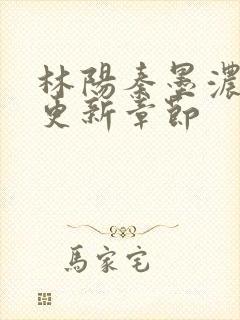 林陽秦墨濃
更新章節
馬家宅